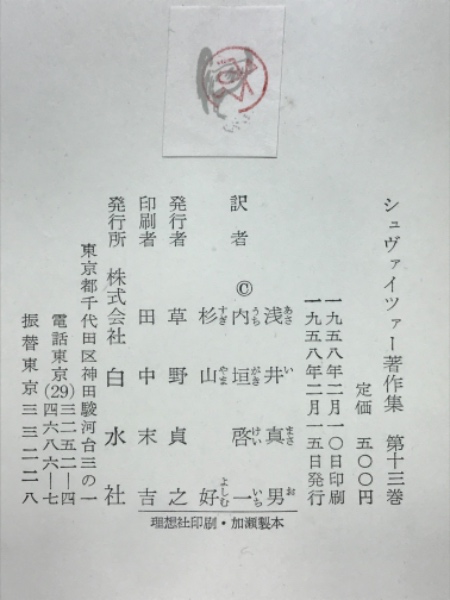 シュヴァイツァー著作集 第十三巻
定価 五〇〇円
一九五八年二月一〇日印刷
一九五八年二月一五日発行
訳者
©
浅井真男
あさ い まさ お
内垣啓一
うち がき けい いち
杉山好
すぎ やま よしむ
発行者 草野貞之
印刷者 田中末吉
発行所 株式会社 白水社
東京都千代田区神田駿河台三の一
電話東京(29)三二五二―四
四六八六―七
振替東京三三二二八
理想社印刷・加瀬製本